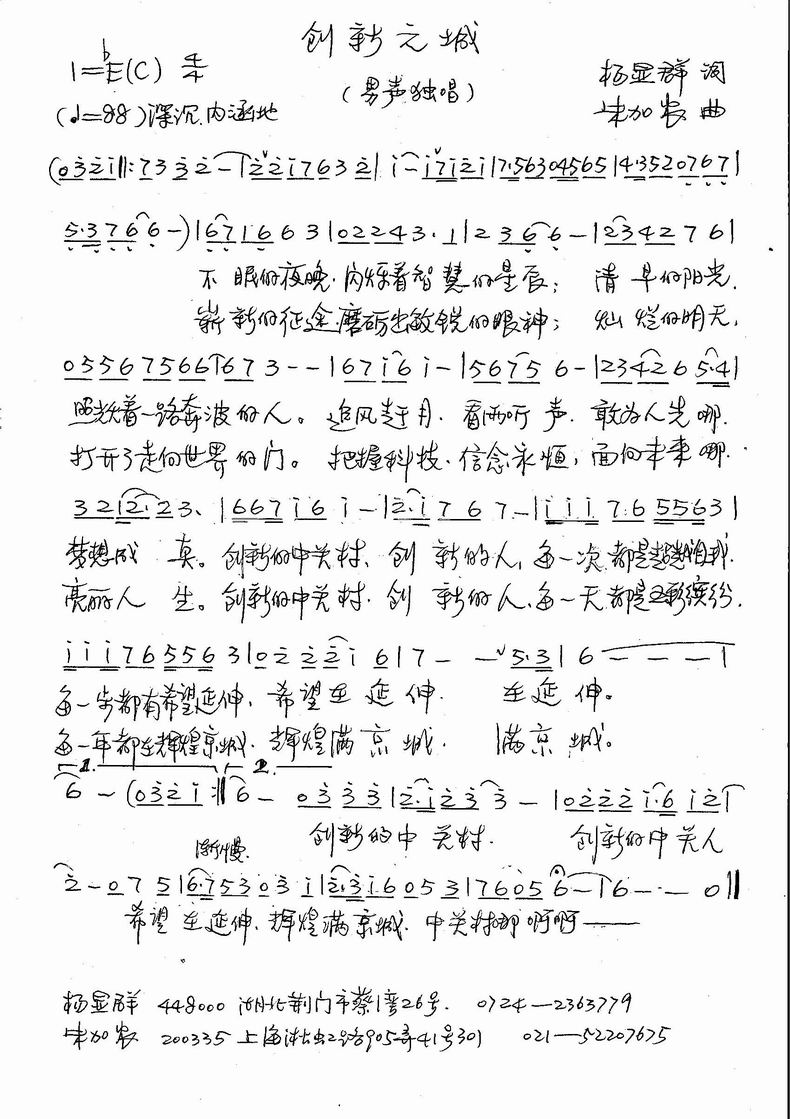 创新之城
1=♭E(C) 4/4
(男声独唱)
杨显群 词
(♩=88)深沉、内涵地
朱加农 曲
(0 3 2 1 ‖: 7 3 3 2 - | 2 2 1 7 6 3 2 | 1 - 1 7 1 2 1 | 7·5 6 3 0 4 5 6 5 | 4·3 5 2 0 7 6 7 |
5·3 7 6 6 -) | 6 7 1 6 6 3 | 0 2 2 4 3· 1 | 2 3 6 6 - | 2 3 4 2 7 6 |
不眠的夜晚,闪烁着智慧的星辰; 清早的阳光,
崭新的征途磨砺出敏锐的眼神; 灿烂的明天,
0 5 5 6 7 5 6 6 | 6 7 3 - - | 6 7 1 6 1 - | 5 6 7 5 6 - | 2 3 4 2 6 5·4 |
照耀着一路奔波的人。 追风赶月、看雨听声、敢为人先哪,
打开了走向世界的门。 把握科技、信念永恒,面向未来哪,
3 2 1 2· 2 3· | 6 6 7 1 6 1 - | 2·1 7 6 7 - | 1 1 1 7 6 5 5 6 3 |
梦想成真。创新的中关村、创新的人,每一次都是超越自我,
亮丽人生。创新的中关村、创新的人,每一天都是五彩缤纷,
1 1 1 7 6 5 5 6 3 | 0 2 2 2 1 6 | 7 - - 5·3 | 6 - - - |
每一步都有希望延伸,希望在延伸, 在延伸。
每一年都在辉煌京城,辉煌满京城, 满京城。
1. 2.
6 - (0 3 2 1 :‖ 6 - 0 3 3 3 | 2·1 2 3 3 - | 0 2 2 2 1·6 1 2 |
创新的中关村, 创新的中关人
渐慢
2 - 0 7 5 | 6·7 5 3 0 3 1 | 2·3 1 6 0 5 3 | 7 6 0 5 6 - | 6 - - 0 ‖
希望在延伸,辉煌满京城,中关村那啊啊——
杨显群 448000 湖北荆门市蔡1弯26号. 0724—2363779
朱加农 200335 上海 905弄41号301 021—52207675